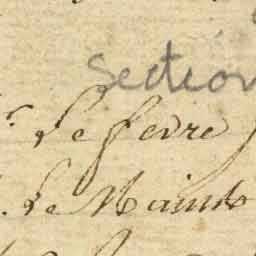 Section
r. Le fevre
Le Maindo